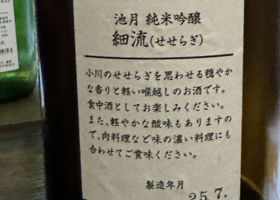 池月 純米吟醸
細流(せせらぎ)
小川のせせらぎを思わせる穏やか
な香りと軽い喉越しのお酒です。
食中酒としてお楽しみください。
また、軽やかな酸味もありますの
で、肉料理など味の濃い料理にも
合わせてご賞味ください。
製造年月
25.7.